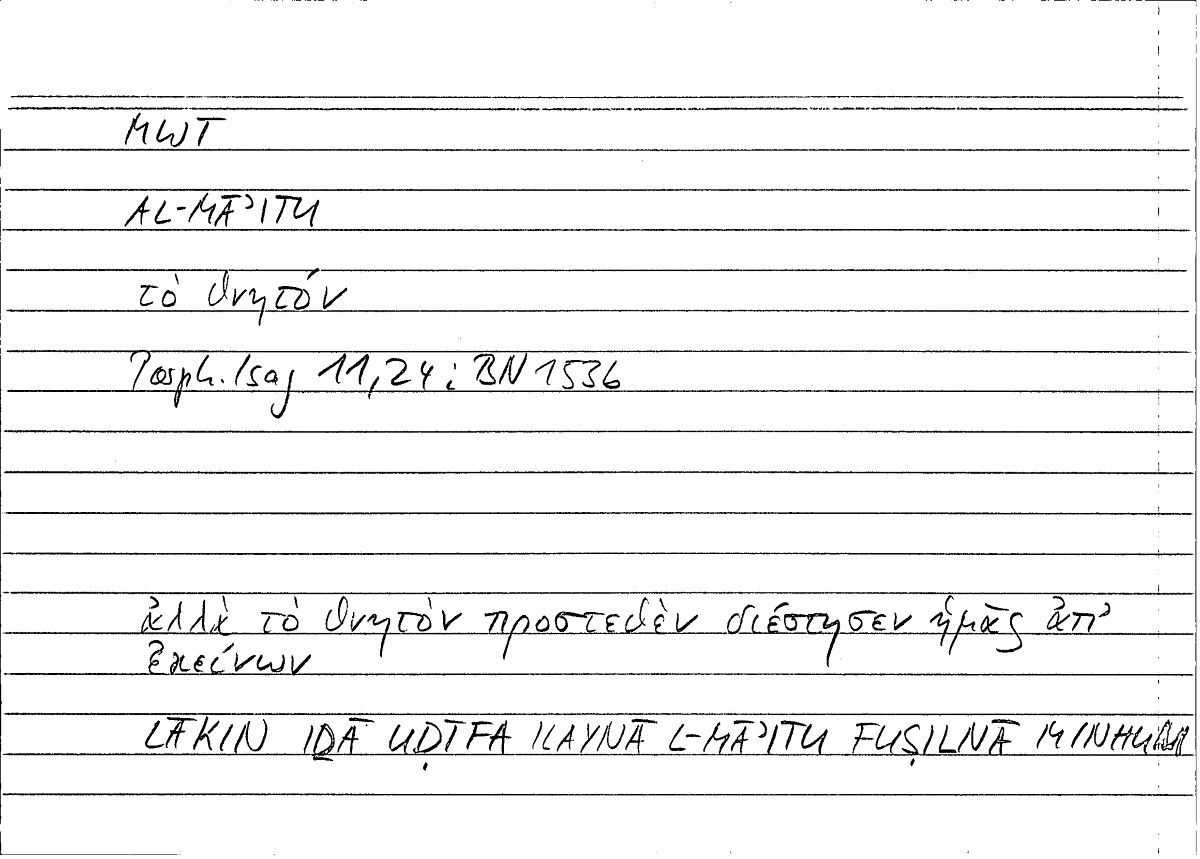 MWT
AL-MĀʾITU
τὸ θνητόν
Porph. Isag 11,24; BN 1536
ἀλλὰ τὸ θνητὸν προστεθὲν διέστησεν ἡμᾶς ἀπ’
ἐκείνων
LĀKIN IḎĀ UḌĪFA ILAYNĀ L-MĀʾITU FUṢILNĀ MINHUM